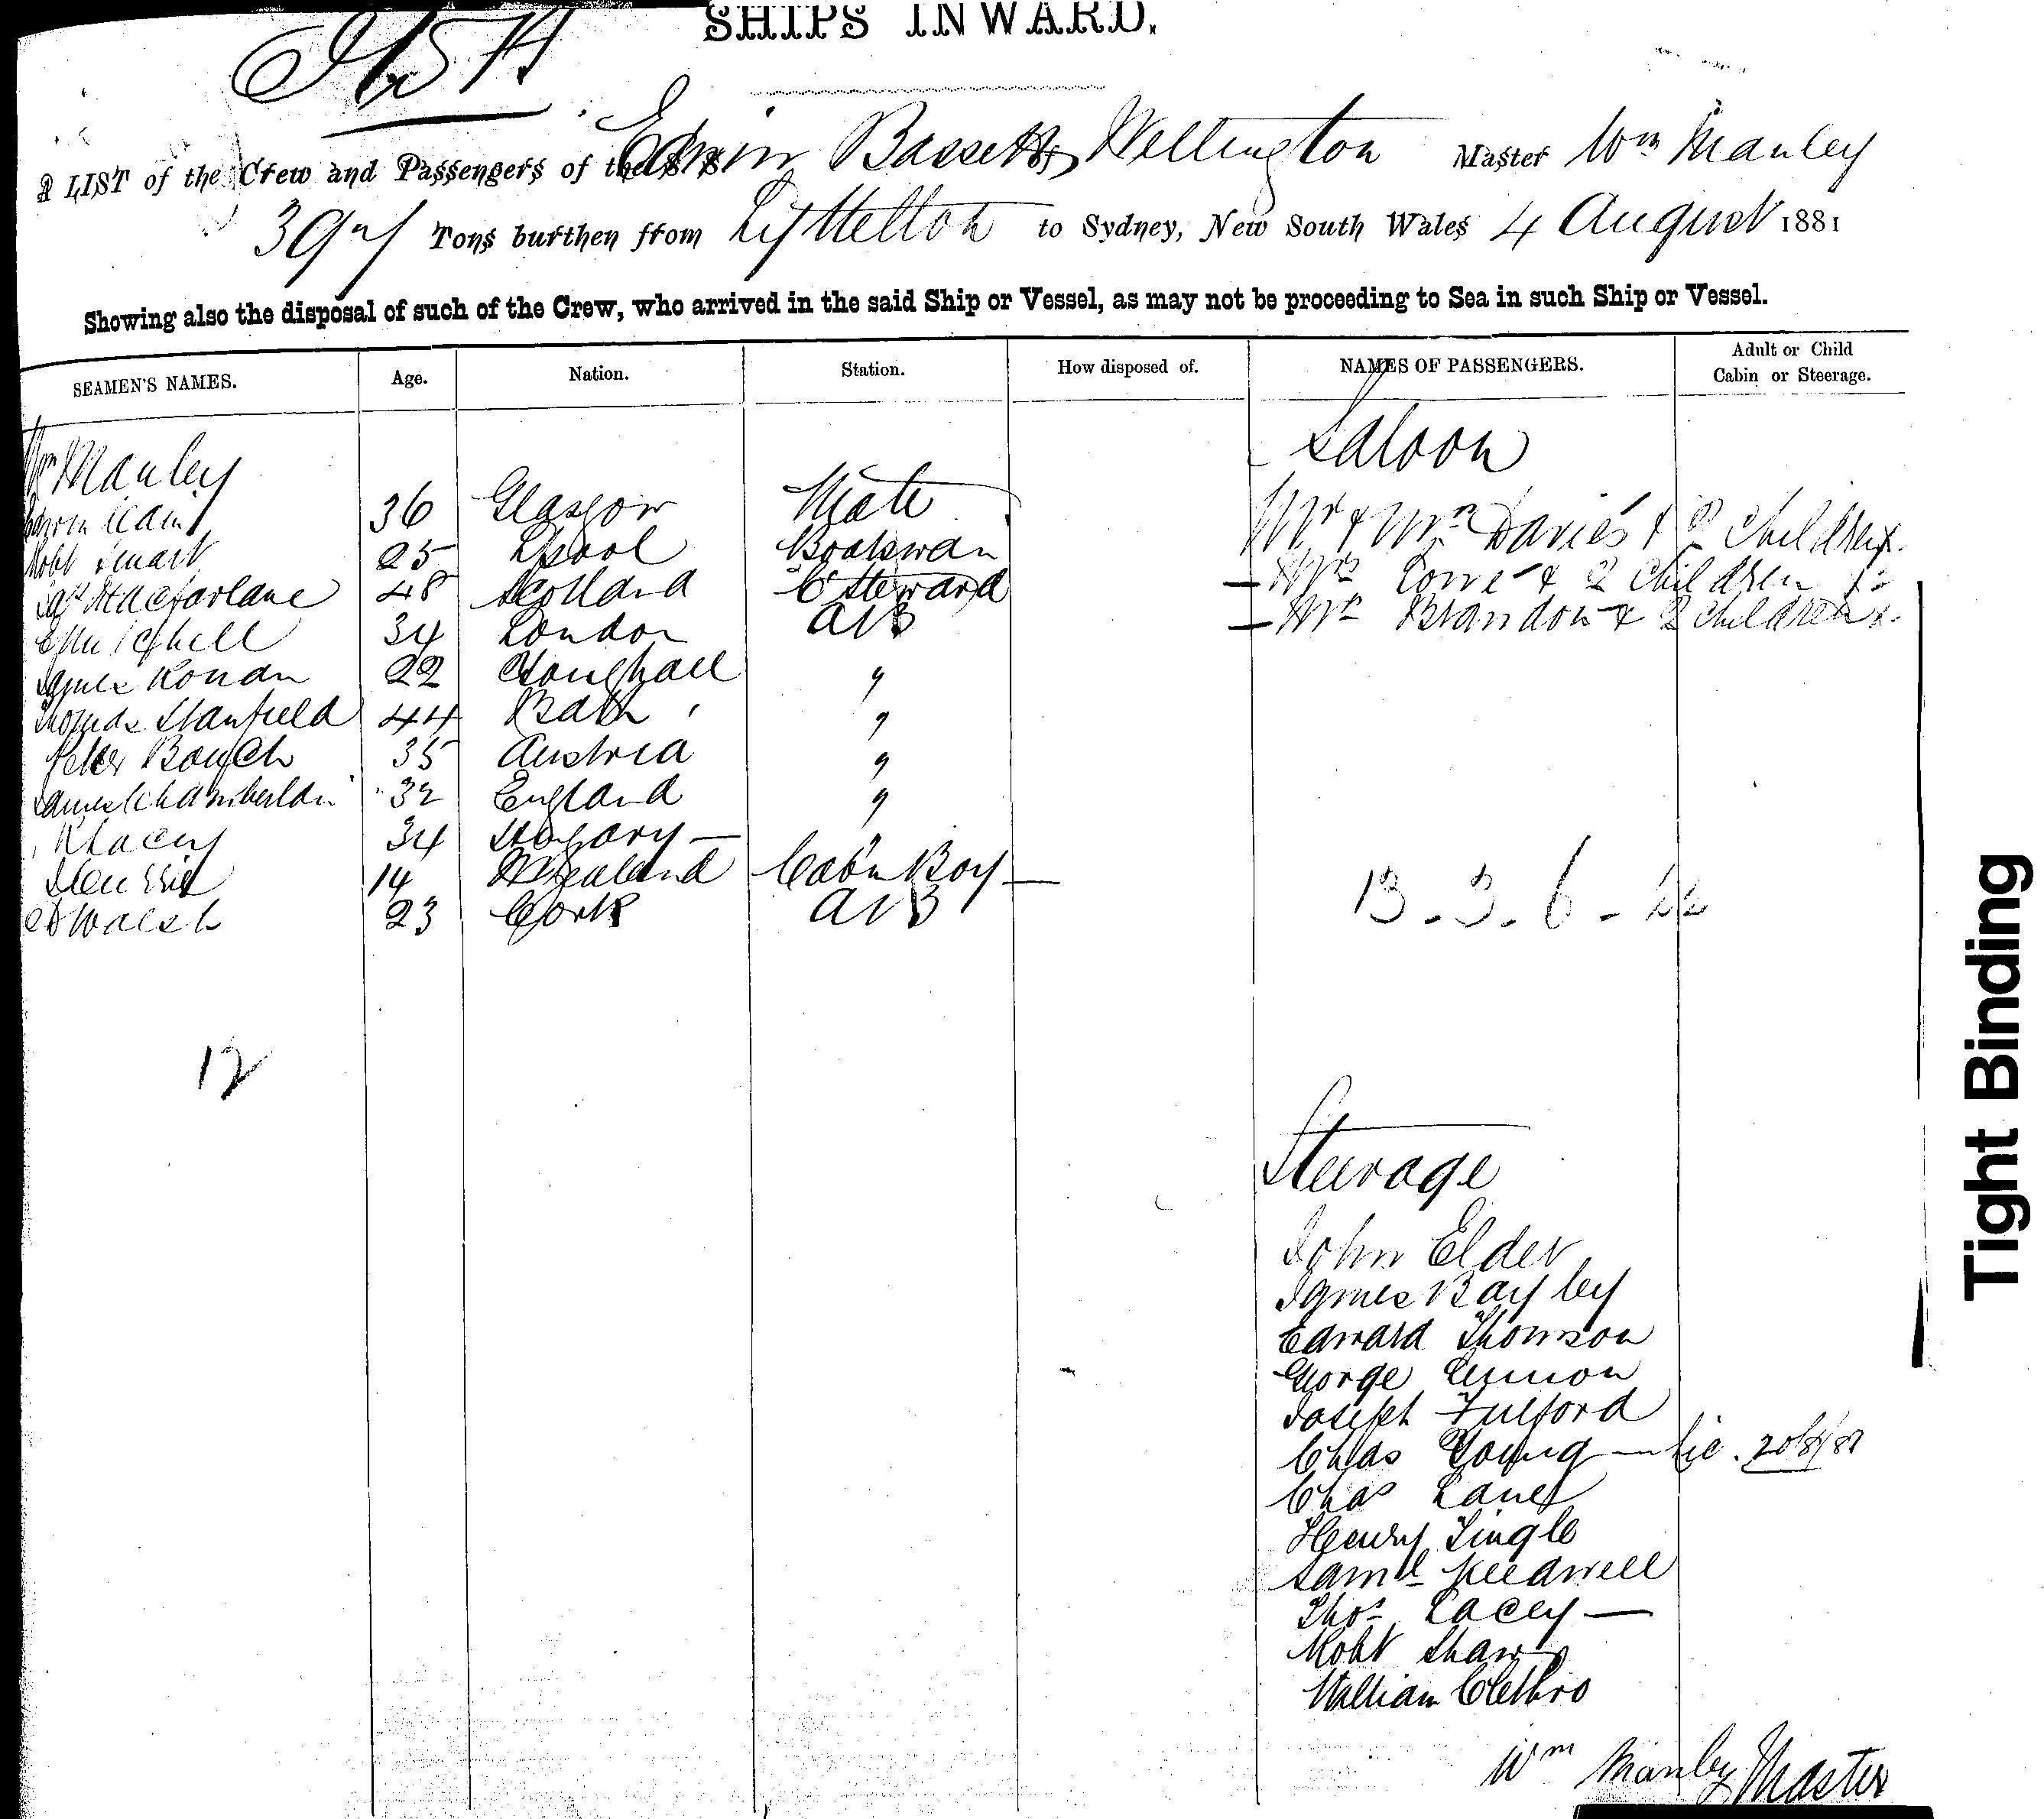 SHIPS INWARD.
A LIST of the Crew and Passengers of the Edwin Bassett of Wellington Master Wm Manley
Tons burthen from Lyttelton to Sydney, New South Wales 4 August 1881
Showing also the disposal of such of the Crew, who arrived in the said Ship or Vessel, as may not be proceeding to Sea in such Ship or Vessel.
SEAMEN'S NAMES. Age. Nation. Station. How disposed of. NAMES OF PASSENGERS. Adult or Child Cabin or Steerage.
Saloon
Wm Manley
36 Glasgow Mate Mr & Mrs Davies & 2 Children
Robt Smart 25 Lpool Boatswan Mrs Lowe & 2 Children
Jas Macfarlane 48 Scotland C Steward Mrs Brandon & 2 children
34 London AB
James Ronan 22 Youghall "
Thomas Stanfield 44 Bath "
Peter Bouch 35 Austria "
James Chamberlain 32 England "
Stacey 34
14 N Zealand Cabin Boy
Walsh 23 Cork AB
13 - 3 - 6 - 22
12
Steerage
John Elder
James Bayley
Edward Thomson
George Lennon
Joseph Fulford
Chas Young
Chas Lane
Henry Tingle
Saml Keedwell
Thos Lacey
Robt Shaw
William Clethro
Wm Manley Master
Tight Binding